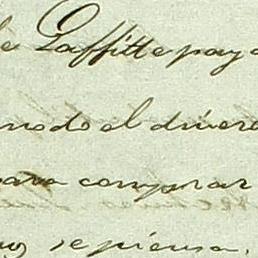 de Laffitte pay
modo el dinero
para comprar
se piensa.